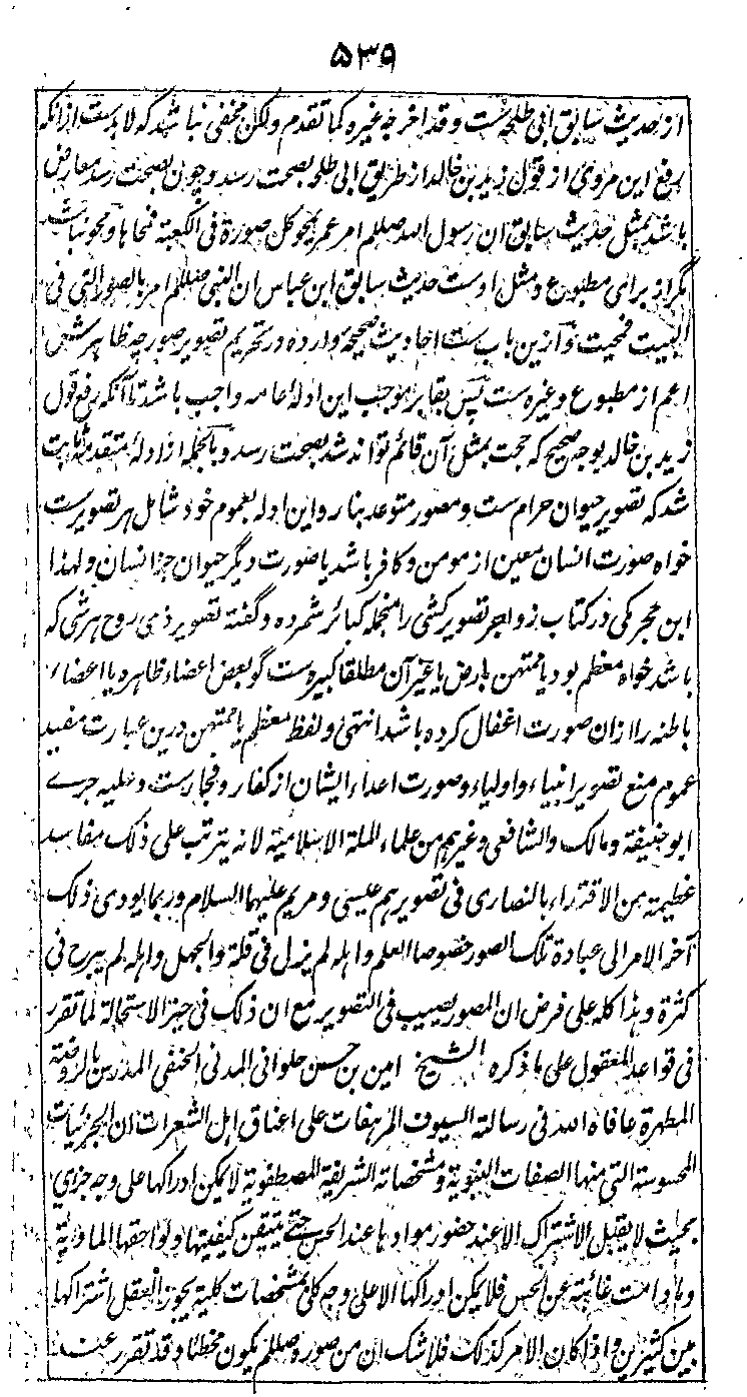 ۵۳۹
از حدیث سابق ابی طلحه ست و قد اخرجه غیره کما تقدم ولکن مخفی نباشد که لابدست ازانکه
رفع این مروی از قول زید بن خالد از طریق ابی طلحه بصحت رسد و چون بصحت رسد معارض
باشد بمثل حدیث سابق ان رسول الله صللم امر عمر بمحو کل صورة فی الکعبة فمحاها و محو نباشد
مگر از برای مطبوع و مثل اوست حدیث سابق ابن عباس ان النبی صللم امر بالصور التی فی
البیت فمحیت و ازین باب ست احادیث صحیحه وارده در تحریم تصویر صور چه ظاهرش
اعم از مطبوع و غیره ست پس بقا بر موجب این ادلهٔ عامه واجب باشد تا آنکه رفع قول
زید بن خالد بوجه صحیح که حجت بمثل آن قائم تواند شد بصحت رسد و بالجمله از ادلهٔ متقدمه ثابت
شد که تصویر حیوان حرام ست و مصور متوعد بنار و این ادله بعموم خود شامل هر تصویرست
خواه صورت انسان معین از مومن و کافر باشد یا صورت دیگر حیوان جز انسان و لهذا
ابن حجر مکی در کتاب زواجر تصویرکشی را منجمله کبائر شمرده و گفته تصویر ذی روح هر شی که
باشد خواه معظم بود یا ممتهن بارض یا غیر آن مطلقا کبیره ست گو بعض اعضاء ظاهره یا اعضاء
باطنه را ازان صورت اغفال کرده باشد انتهی و لفظ معظم یا ممتهن درین عبارت مفید
عموم منع تصویر انبیاء و اولیاء و صورت اعداء ایشان از کفار و فجارست و علیه جری
ابو حنیفة و مالک والشافعی و غیرهم من علماء الملة الاسلامیة لانه یترتب علی ذلک مفاسد
عظیمة من الاقتداء بالنصاری فی تصویرهم عیسی و مریم علیهما السلام و ربما یودی ذلک
آخر الامر الی عبادة تلک الصور خصوصا العلم واهله لم یزل فی قلة والجهل واهله لم یبرح فی
کثرة وهذا کله علی فرض ان المصور یصیب فی التصویر مع ان ذلک فی حیز الاستحالة لما تقرر
فی قواعد المعقول علی ما ذکره الشیخ امین بن حسن حلوانی المدنی الحنفی المدرس بالروضة
المطهرة عافاه الله فی رسالته السیوف المرهفات علی اعناق اهل الشعرات ان الجزئیات
المحسوسة التی منها الصفات النبویة و مشخصاته الشریفة المصطفویة لا یمکن ادراکها علی وجه جزئی
بحیث لا یقبل الاشتراک الا عند حضور موادها عند الحس حتی یتیقن کیفیتها و لواحقها المادیة
و ما دامت غائبة عن الحس فلا یمکن ادراکها الا علی وجه کلی بمشخصات کلیة یجوز العقل اشتراکها
بین کثیرین و اذا کان الامر کذلک فلا شک ان من صوره صللم یکون مخطئا و قد تقرر عند